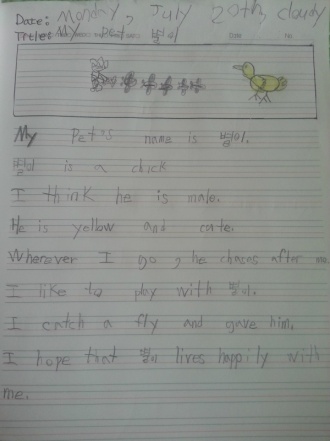 Date: Monday, July 20th, cloudy
Title: My pet 별이
My pet's name is 별이.
별이 is a chick
I think he is male.
He is yellow and cute.
Wherever I go, he chases after me.
I like to play with 별이.
I catch a fly and gave him.
I hope that 별이 lives happily with
me.